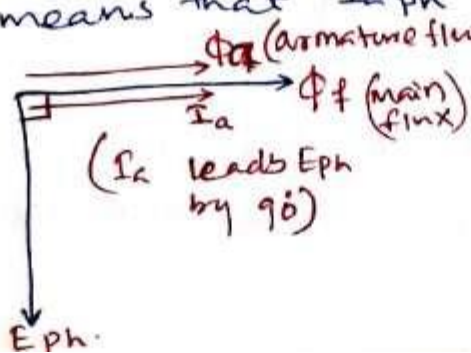 means that Iaph
Φa (armature flu
Φf (main flux)
Ia
(Ia leads Eph
by 90°)
Eph.